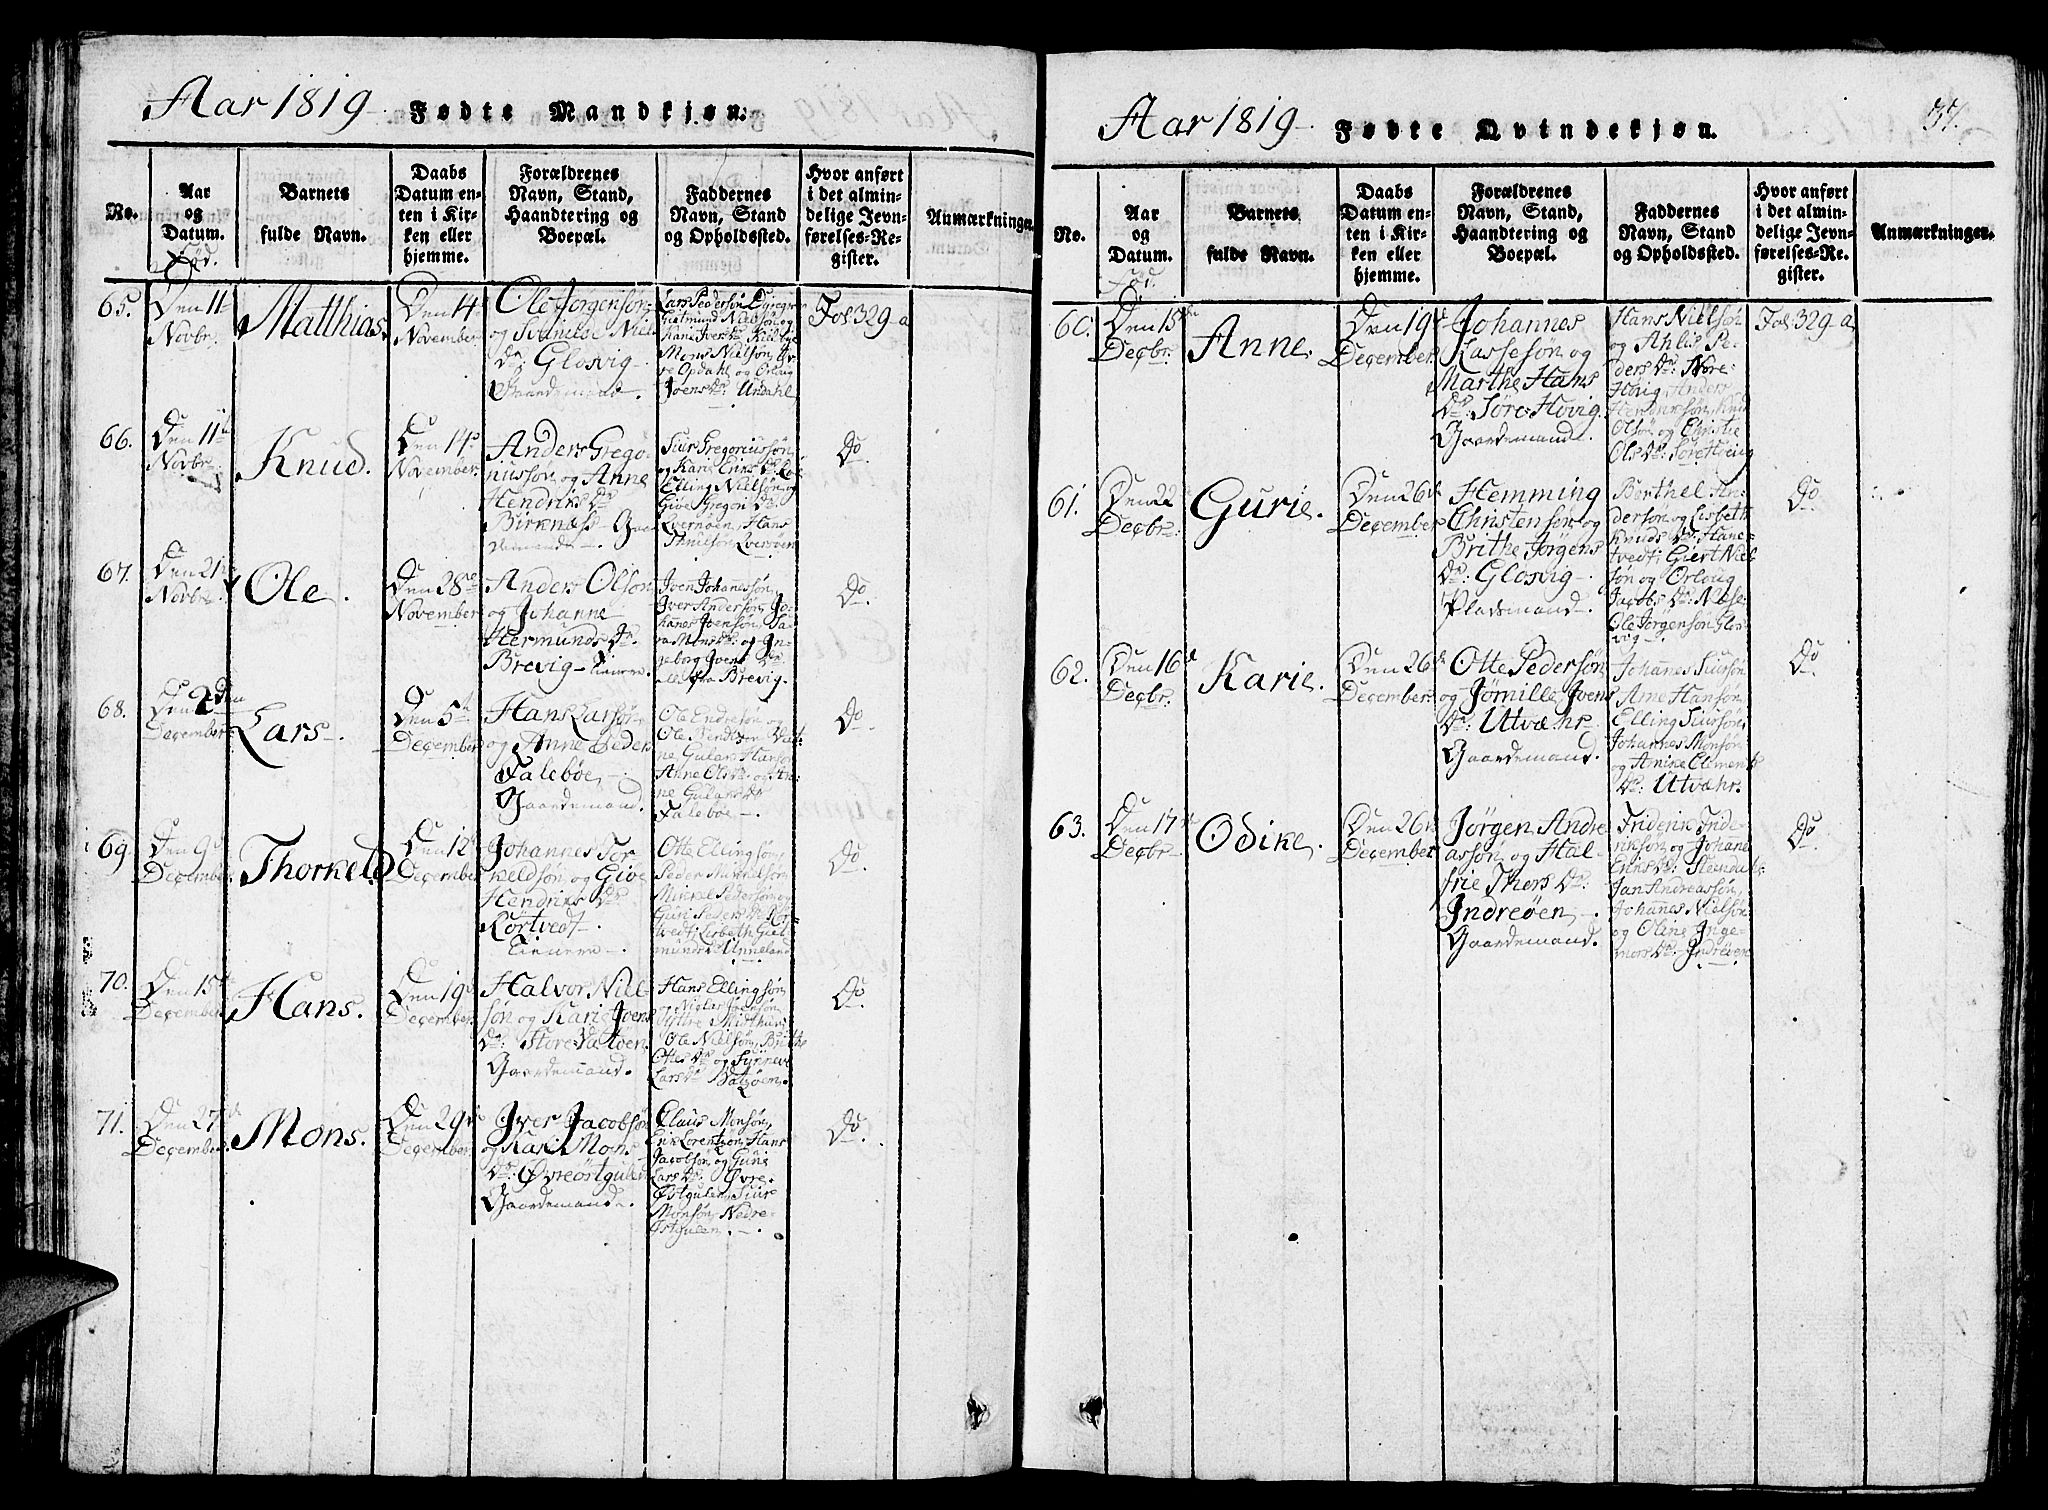 Aar 1819 Fødte Mandkjøn.
No.
Aar
og
Datum.
Fød.
Barnets
fulde Navn.
Daabs
Datum en-
ten i Kir-
ken eller
hjemme.
Forældrenes
Navn, Stand,
Haandtering og
Boepæl.
Faddernes
Navn, Stand
og Opholdssted.
Hvor anført
i det almin-
delige Jevn-
førelses-Re-
gister.
Anmærkninger.
65.
Den 11
Novbr.
Matthias.
Den 14
November
Ole Jørgensøn
og Synneve Niels
Dr: Glosvig
Gaardemand.
Lars Pedersøn
Mons Nielsøn
Opdahl og
Joens Dr: Undahl
Fol 329 a
66.
Den 11
Novbr.
Knud.
Den 14
November
Anders Grego-
riussøn og Anne
Hendriks Dr
Birknæs Gaar
demand.
Siur Gregoriussøn
og Kari
Elling Nielsøn og
Give Gregori Dr.
Hans
Do
67.
Den 21
Novbr.
Ole.
Den 28
November
Anders Olson
og Johanne
Hermunds Dr.
Brevig
Joen Johanessøn,
Iver Andersøn, Jo-
hanes Joensøn,
Mons Dr. og In-
geborg Joens Dr
alle fra Brevig.
Do.
68.
Den 2den
December
Lars.
Den 5
December
Hans Larsøn
og Anne Peders
Falebøe
Gaardemand.
Ole Endresøn og
Anne Ols Dr. og An-
ne Gulaks Dr
Falebøe.
Do
69
Den 9
December.
Thorkeld
Den 12
December
Johannes Tor
keldsøn og Give
Hendriks Dr
Kortvedt
Otte Ellingsøn,
Peder Mikkelsøn
Mikkel Pedersøn og
Guri Peders Dr Kor-
tvedt, Lisbeth
Unneland
Do.
70.
Den 15
December.
Hans.
Den 19
December
Halvor Niel-
søn og Kari Joens
Dr: Store Batøen
Gaardemand.
Hans Ellingsøn
og Niels Joensøn
Yttre
Ole Nielsøn, Brithe
Ottes Dr og Synneve
Lars Dr Batøen.
Do.
71.
Den 27
December.
Mons.
Den 29
December.
Iver Jacobsøn
og Kari Mons
Dr: Øvreøstgulen
Gaardemand.
Claus Monsøn,
Erik Lorentsøn, Hans
Jacobsøn og Guri
Lars Dr: Øvre
Østgulen, Siur
Monsøn, Nedre
Østgulen.
Do.
Aar 1819 Fødte Qvindekjøn.
37.
No.
Aar
og
Datum.
Fød.
Barnets
fulde Navn.
Daabs
Datum en-
ten i Kir-
ken eller
hjemme.
Forældrenes
Navn, Stand,
Haandtering og
Boepæl.
Faddernes
Navn, Stand
og Opholdssted.
Hvor anført
i det almin-
delige Jevn-
førelses-Re-
gister.
Anmærkninger.
60.
Den 15
Decbr.
Anne.
Den 19
December.
Johannes
Lassesøn og
Marthe Hans
Dr: Søre Hovig
Gaardemand.
Hans Nielsøn
og Ahlis Pe-
ders Dr: Nore
Hovig, Anders
Hendriksøn, Knud
Olsøn og Christie
Ols Dr: Søre Hovig
Fol 329 a
61.
Den 22
Decbr.
Gurie.
Den 26
December
Hemming
Christensøn og
Brithe Jørgens
Dr: Glosvig
Pladsmand.
Berthel An-
dersøn og Lisbeth
Knuds Dr. Hane-
tvedt; Giert Niel
søn og Orloug
Jacobs Dr.
Ole Jørgensøn Glos
vig.
Do
62.
Den 16
Decbr.
Karie.
Den 26
December.
Otte Pedersøn
og Jørnille Joens
Dr: Utvæhr
Gaardemand.
Johanes Siursøn
Arne Hansøn,
Elling Siursøn,
Johannes Monsøn
og Anike Clements
Dr: Utvæhr.
Do
63.
Den 17
Decbr
Odike.
Den 26
December.
Jørgen Andre
assøn og Hal-
frie Thors Dr:
Indreøen
Gaardemand.
Friderik Fride-
riksøn og Johane
Eriks Dr:
Jan Andreassøn,
Johannes Nielsøn
og Oline Inge-
mors Dr: Indreøen
Do